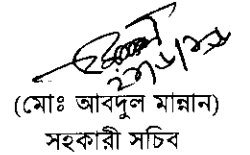 (মোঃ আবদুল মান্নান)
সহকারী সচিব